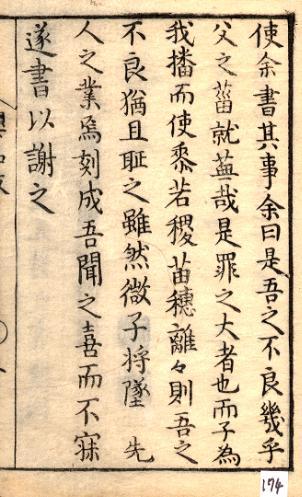 使余書其事余曰是吾之不良幾乎
父之菑就蕪哉是罪之大者也而子為
我播而使黍若稷苗穗離々則吾之
不良猶且耻之雖然微子将墜　先
人之業焉刻成吾聞之喜而不寐
遂書以謝之
174